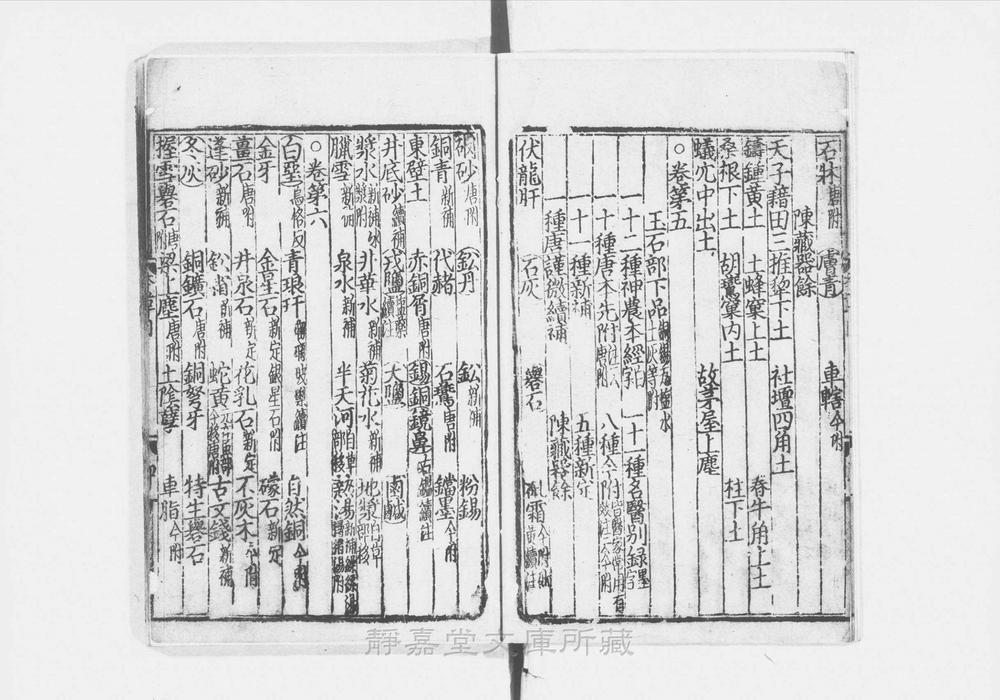 石牀唐附 膚青 車轄今附
陳藏器餘
天子藉田三推犂下土 社壇四角土
鑄鍾黄土 土蜂窠上土 春牛角上土
桑根下土 胡鷰窠内土 柱下土
蟻穴中出土 故茅屋上塵
○卷第五
玉石部下品
一十二種神農本經白字 一十一種名醫別錄墨字
一十種唐本先附 八種今附
一十一種新補 五種新定
一種唐謹微續補 陳藏器餘
伏龍肝 石灰 礜石 霜
砂唐附 鈆丹 鈆新補 粉錫
銅青新補 代赭 石鷰唐附 鐺墨今附
東壁土 赤銅屑唐附 錫銅鏡鼻
井底砂續補 戎鹽 大鹽 鹵鹹
漿水新補 井華水新補 菊花水新補 地漿
臘雪新補 泉水新補 半天河
○卷第六
白堊烏恪反 青琅玕 自然銅今附
金牙 金星石新定銀星石附 礞石新定
薑石唐附 井泉石新定 花乳石新定 不灰木今附
蓬砂新補 鈆霜新補 蛇黄 古文錢新補
冬灰 銅鑛石唐附 銅弩牙 特生礜石
握雪礜石唐附 梁上塵唐附 土陰孽 車脂今附
靜嘉堂文庫所藏